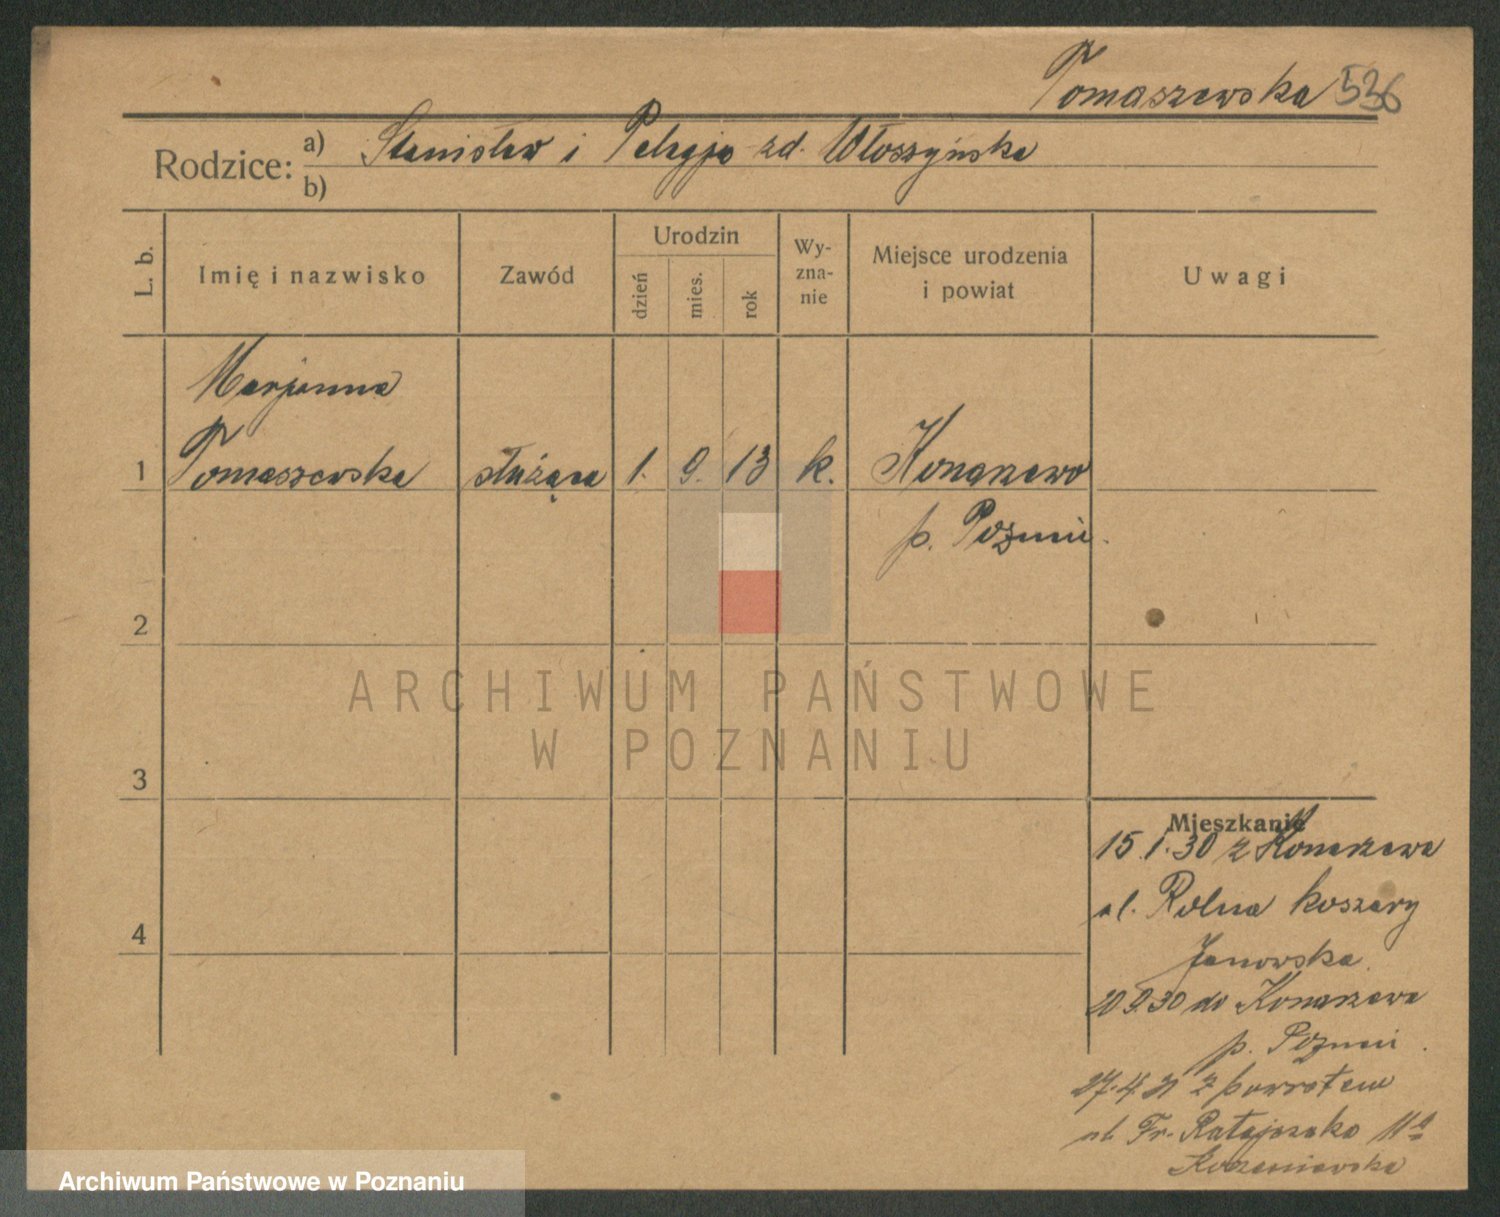 Tomaszewska 536
Rodzice: a) Stanisław i Pelagja zd. Włoszyńska
b)
L. b.
Imię i nazwisko
Zawód
Urodzin
dzień
mies.
rok
Wy-
zna-
nie
Miejsce urodzenia
i powiat
Uwagi
Marjanna
1 Tomaszewska służąca 1. 9. 13 k. Konarzewo
p. Poznań.
2
3
4
ARCHIWUM PAŃSTWOWE
W POZNANIU
Mieszkanie
15.1.30 z Konarzewa
ul. Rolna koszary
Janowska
20 9.30 do Konarzewa
p. Poznań.
27.4.31 z powrotem
ul. Fr. Ratajczaka 11a
Korzeniewska
Archiwum Państwowe w Poznaniu